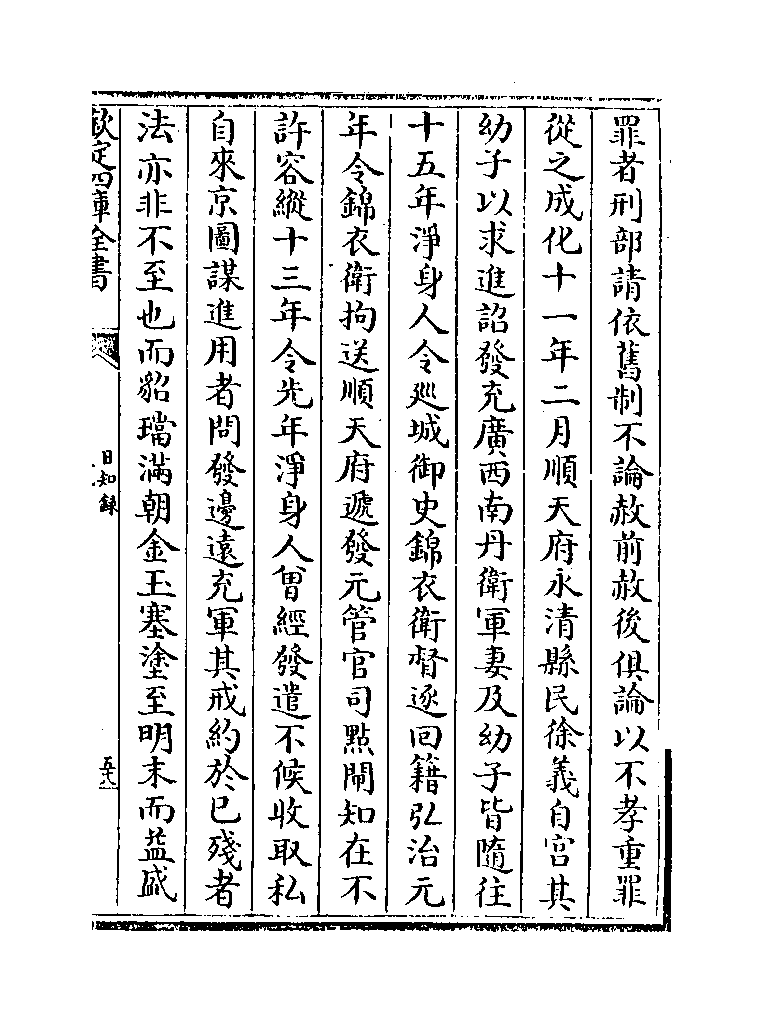 罪者刑部請依舊制不論赦前赦後俱論以不孝重罪
從之成化十一年二月順天府永清縣民徐義自宫其
幼子以求進詔發充廣西南丹衛軍妻及幼子皆隨往
十五年淨身人令廵城御史錦衣衛督逐回籍弘治元
年令錦衣衛拘送順天府遞發元管官司點閘知在不
許容縱十三年令先年淨身人曾經發遣不候收取私
自來京圖謀進用者問發邊遠充軍其戒約於已殘者
法亦非不至也而貂璫滿朝金玉塞塗至明末而益盛
欽定四庫全書
日知録